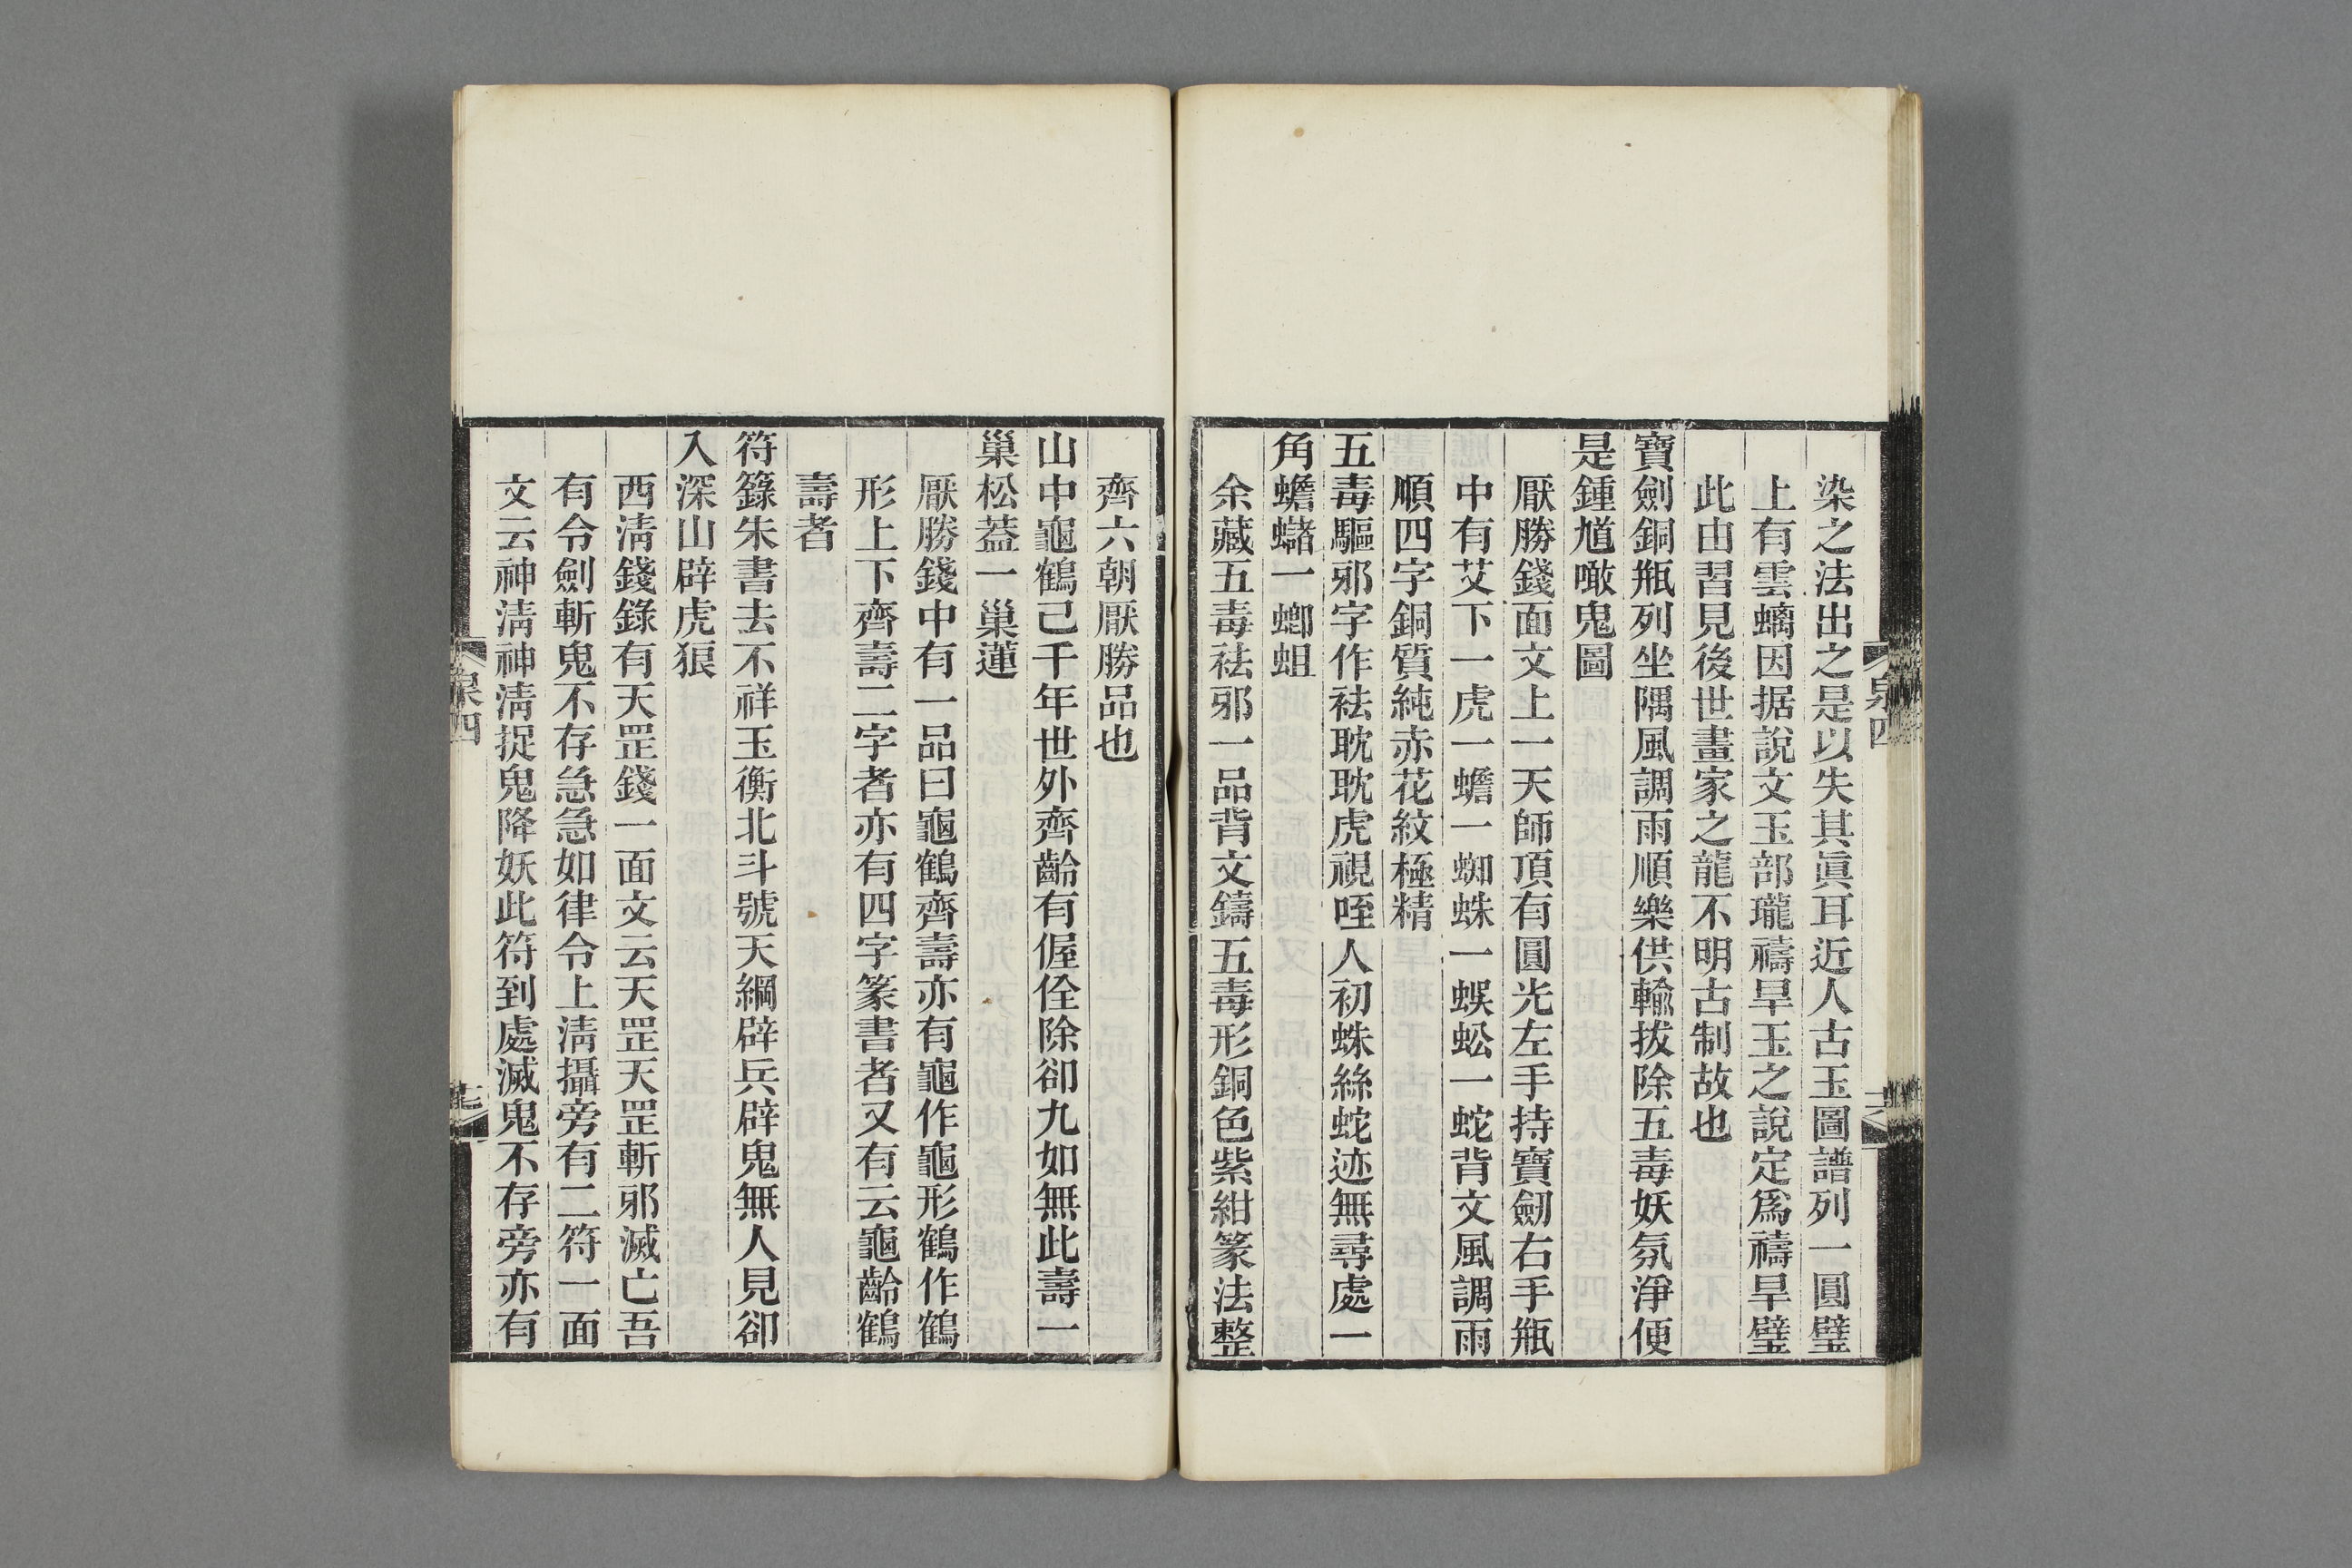 染之法出之是以失其眞耳近人古玉圖譜列一圓璧
上有雲螭因据說文玉部瓏禱旱玉之說定爲禱旱璧
此由習見後世畫家之龍不明古制故也
寶劍銅甁列坐隅風調雨順樂供輸拔除五毒妖氛淨便
是鍾馗噉鬼圖
厭勝錢面文上一天師頂有圓光左手持寶劒右手甁
中有艾下一虎一蟾一蜘蛛一蜈蚣一蛇背文風調雨
順四字銅質純赤花紋極精
五毒驅邪字作袪眈眈虎視咥人初蛛絲蛇迹無尋處一
角蟾蠩一螂蛆
余藏五毒袪邪一品背文鑄五毒形銅色紫紺篆法整
齊六朝厭勝品也
山中龜鶴己千年世外齊齡有偓佺除卻九如無此壽一
巢松葢一巢蓮
厭勝錢中有一品曰龜鶴齊壽亦有龜作龜形鶴作鶴
形上下齊壽二字者亦有四字篆書者又有云龜齡鶴
壽者
符籙朱書去不祥玉衡北斗號天綱辟兵辟鬼無人見卻
入深山辟虎狼
西淸錢錄有天罡錢一面文云天罡天罡斬邪滅亡吾
有令劍斬鬼不存急急如律令上淸攝旁有二符一面
文云神淸神淸捉鬼降妖此符到處滅鬼不存旁亦有
泉四